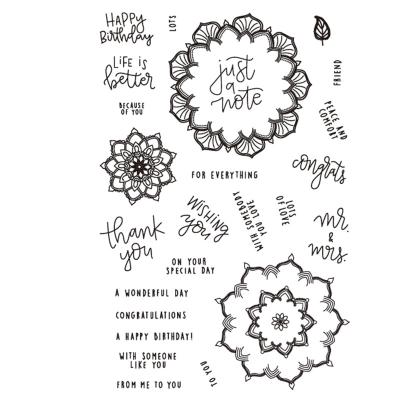 HAPPY
Birthday
LOTS
LIFE IS
better
BECAUSE
OF YOU
just
a
note
FRIEND
PEACE AND
COMFORT
congrats
FOR EVERYTHING
thank
you
WISHING
you
WITH SOMEBODY
YOU LOVE
LOTS
OF LOVE
mr.
&
mrs.
ON YOUR
SPECIAL DAY
A WONDERFUL DAY
CONGRATULATIONS
A HAPPY BIRTHDAY!
WITH SOMEONE
LIKE YOU
FROM ME TO YOU
TO YOU